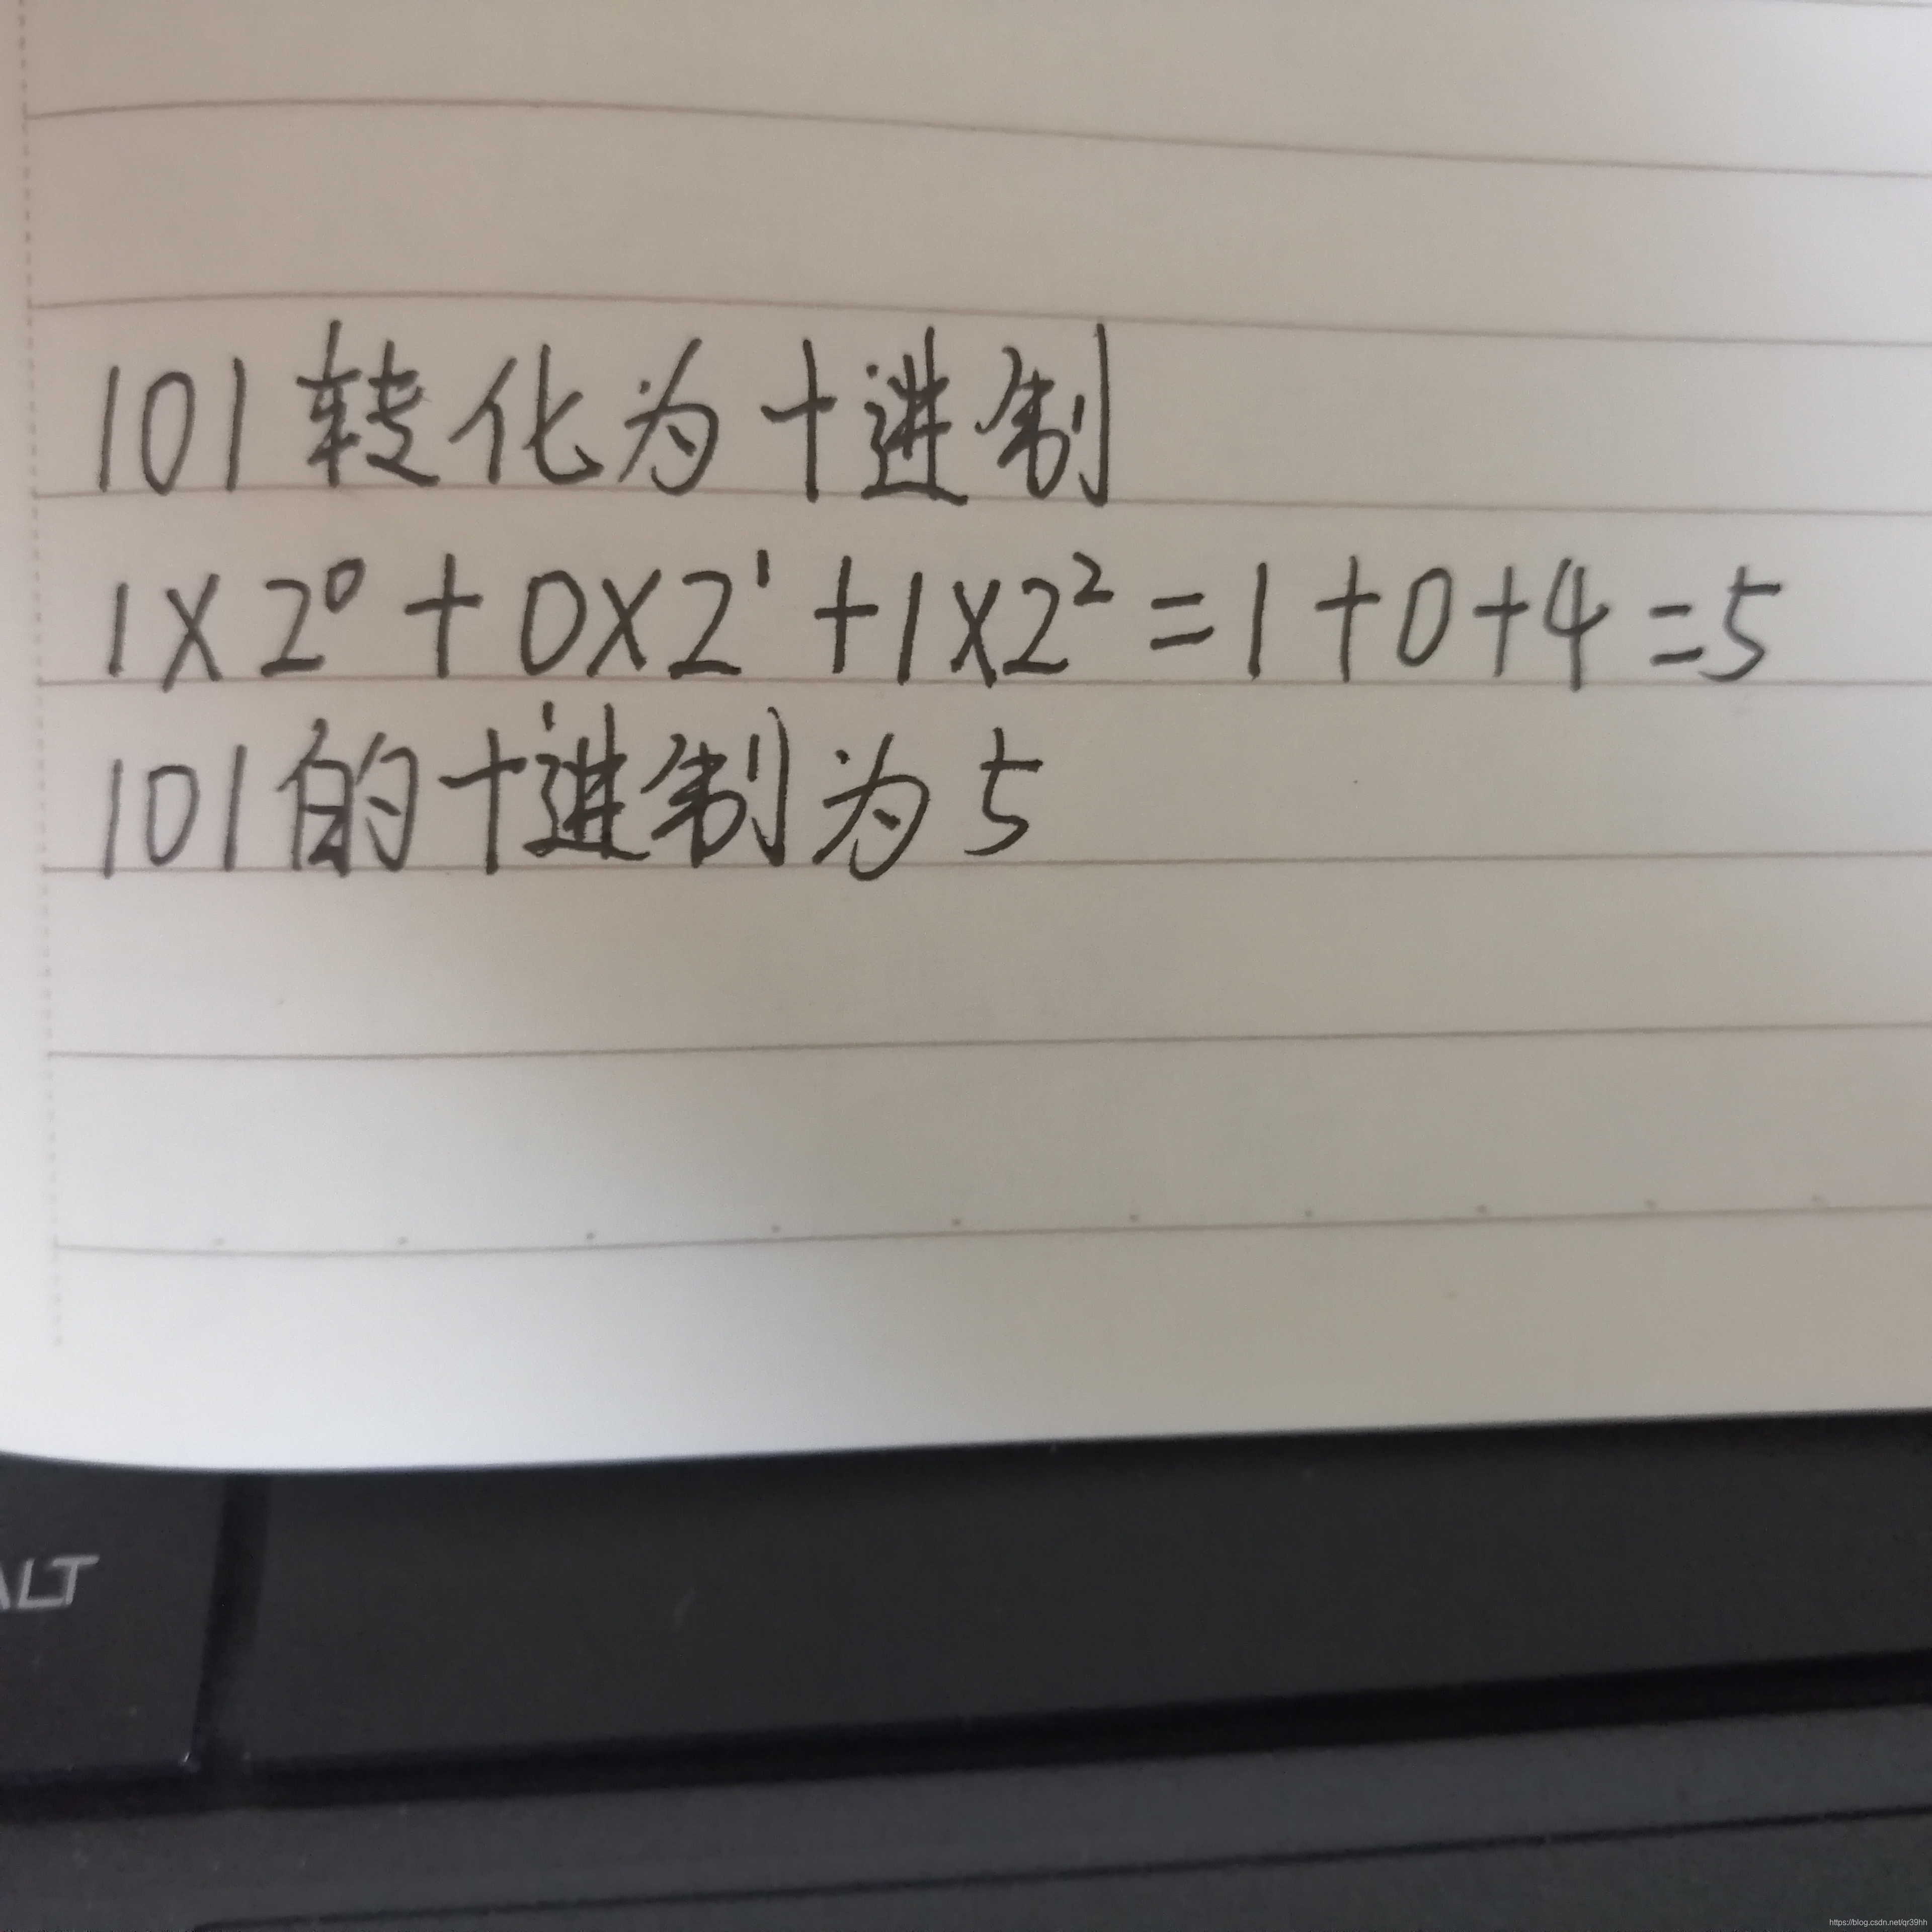 101转化为十进制
1×2⁰+0×2¹+1×2²=1+0+4=5
101的十进制为5
ALT
https://blog.csdn.net/qr39hh